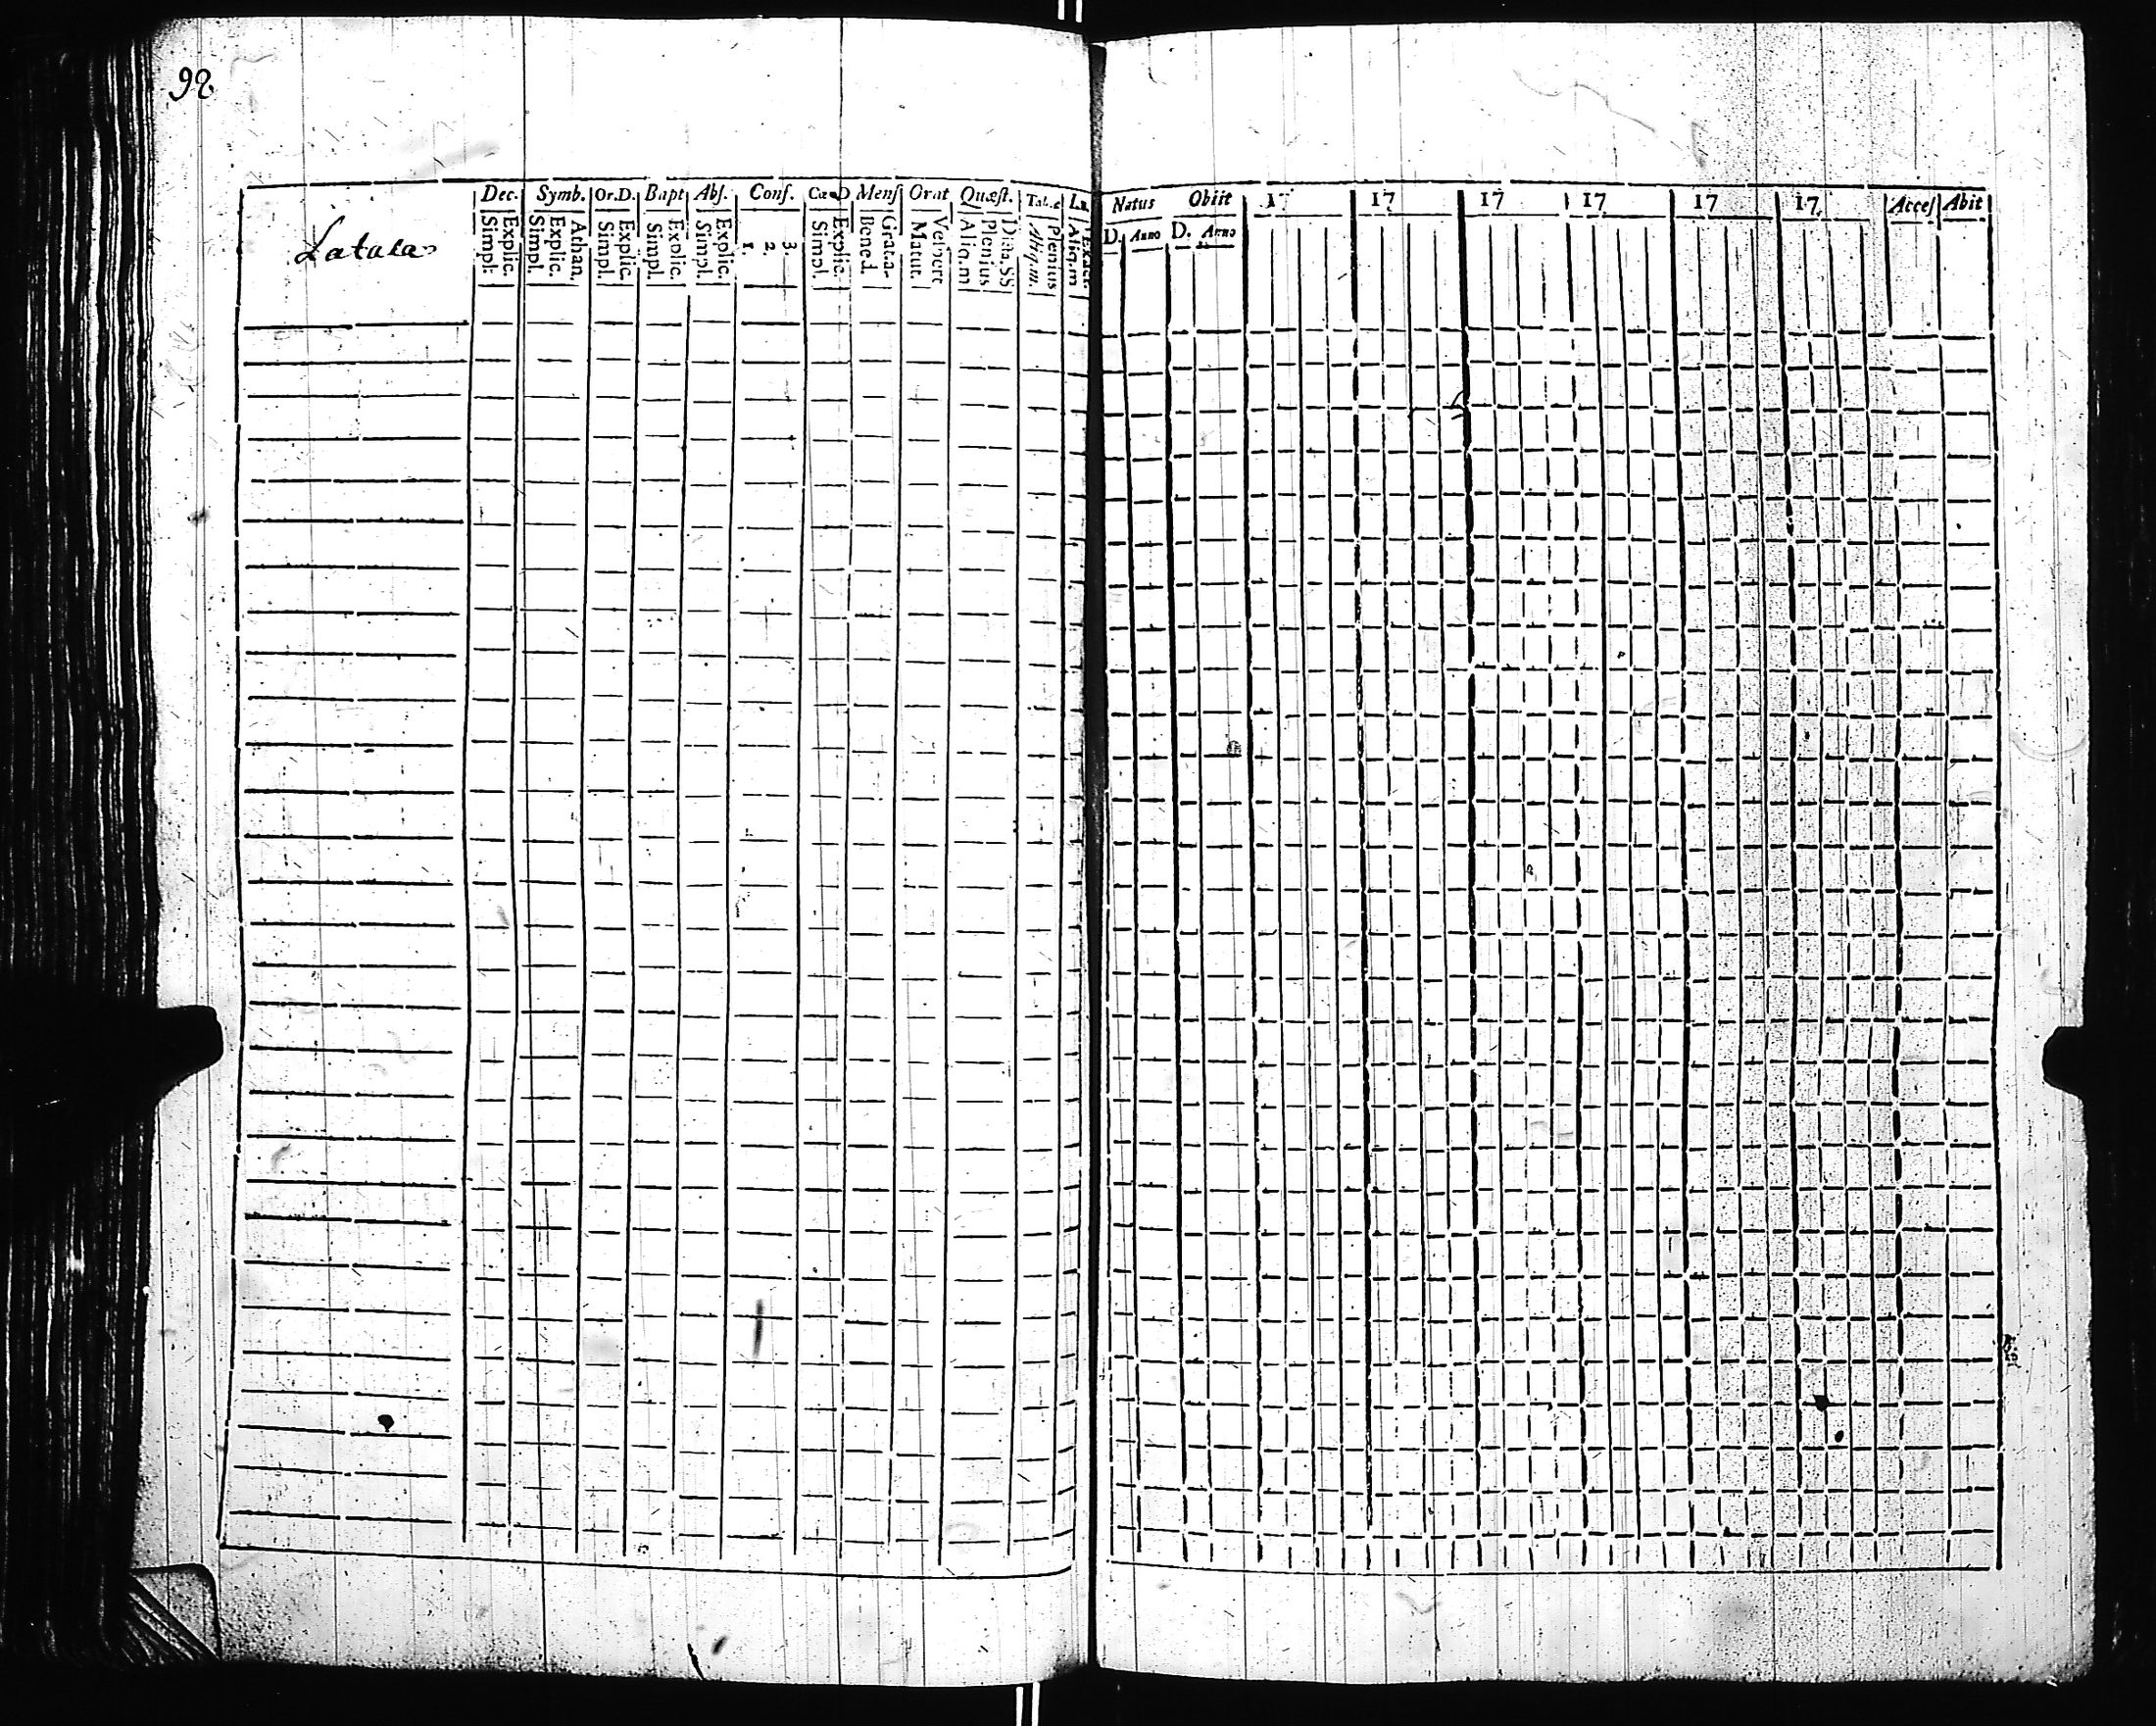 98
Latala
Dec. Symb. Or.D. Bapt Abs. Conf. Cœ D Mens Orat Quæst. Tab.æ
Simpl. Explic. Simpl. Explic. Athan. Simpl. Explic. Simpl. Explic. Simpl. Explic. 1. 2. 3. Simpl. Explic. Bened. Grat.a. Matut. Vespert Aliq.m Plenius Dicta.SS Aliq.m. Plenius Aliq.m Exact.
Natus Obiit 17 17 17 17 17 17 Acces Abit
D. Anno D. Anno